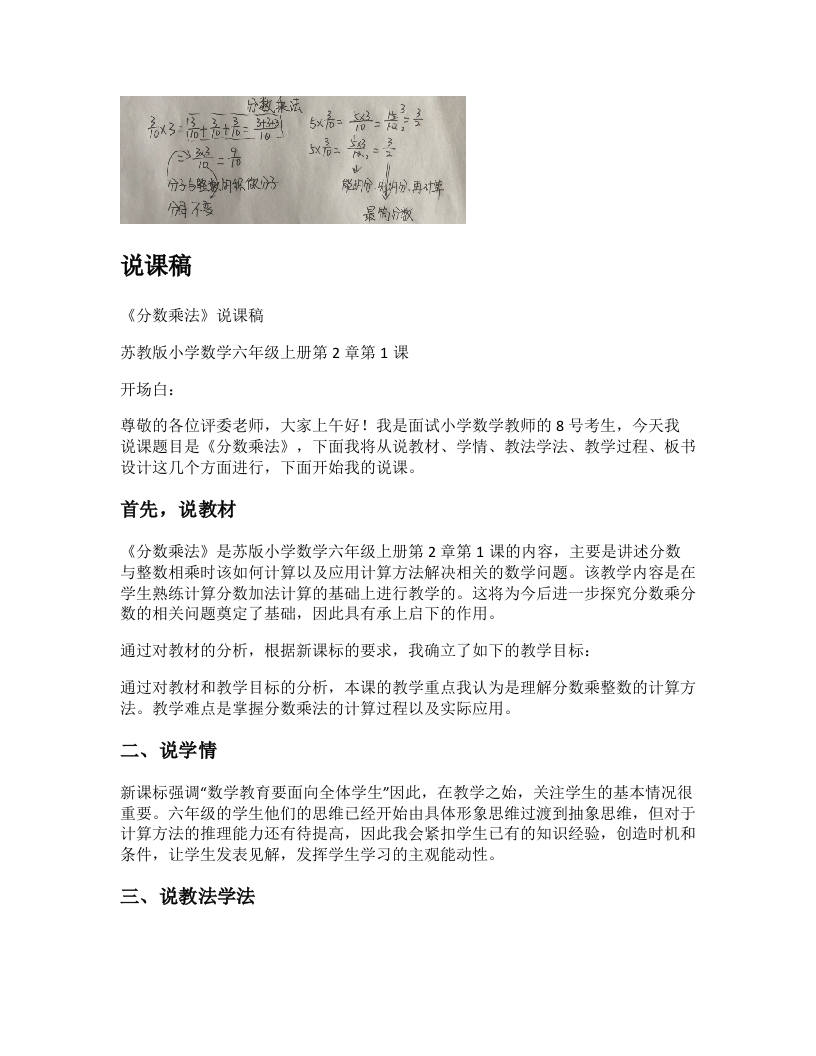 分数乘法
3/10×3=3/10+3/10+3/10=3+3+3/10
=3×3/10=9/10
分子与整数的积做分子
分母不变
5×3/10=5×3/10=15/10=3/2
5×3/10=5×3/10=3/2
能约分 约分、再计算
最简分数
说课稿
《分数乘法》说课稿
苏教版小学数学六年级上册第 2 章第 1 课
开场白：
尊敬的各位评委老师，大家上午好！我是面试小学数学教师的 8 号考生，今天我
说课题目是《分数乘法》，下面我将从说教材、学情、教法学法、教学过程、板书
设计这几个方面进行，下面开始我的说课。
首先，说教材
《分数乘法》是苏版小学数学六年级上册第 2 章第 1 课的内容，主要是讲述分数
与整数相乘时该如何计算以及应用计算方法解决相关的数学问题。该教学内容是在
学生熟练计算分数加法计算的基础上进行教学的。这将为今后进一步探究分数乘分
数的相关问题奠定了基础，因此具有承上启下的作用。
通过对教材的分析，根据新课标的要求，我确立了如下的教学目标：
通过对教材和教学目标的分析，本课的教学重点我认为是理解分数乘整数的计算方
法。教学难点是掌握分数乘法的计算过程以及实际应用。
二、说学情
新课标强调“数学教育要面向全体学生”因此，在教学之始，关注学生的基本情况很
重要。六年级的学生他们的思维已经开始由具体形象思维过渡到抽象思维，但对于
计算方法的推理能力还有待提高，因此我会紧扣学生已有的知识经验，创造时机和
条件，让学生发表见解，发挥学生学习的主观能动性。
三、说教法学法